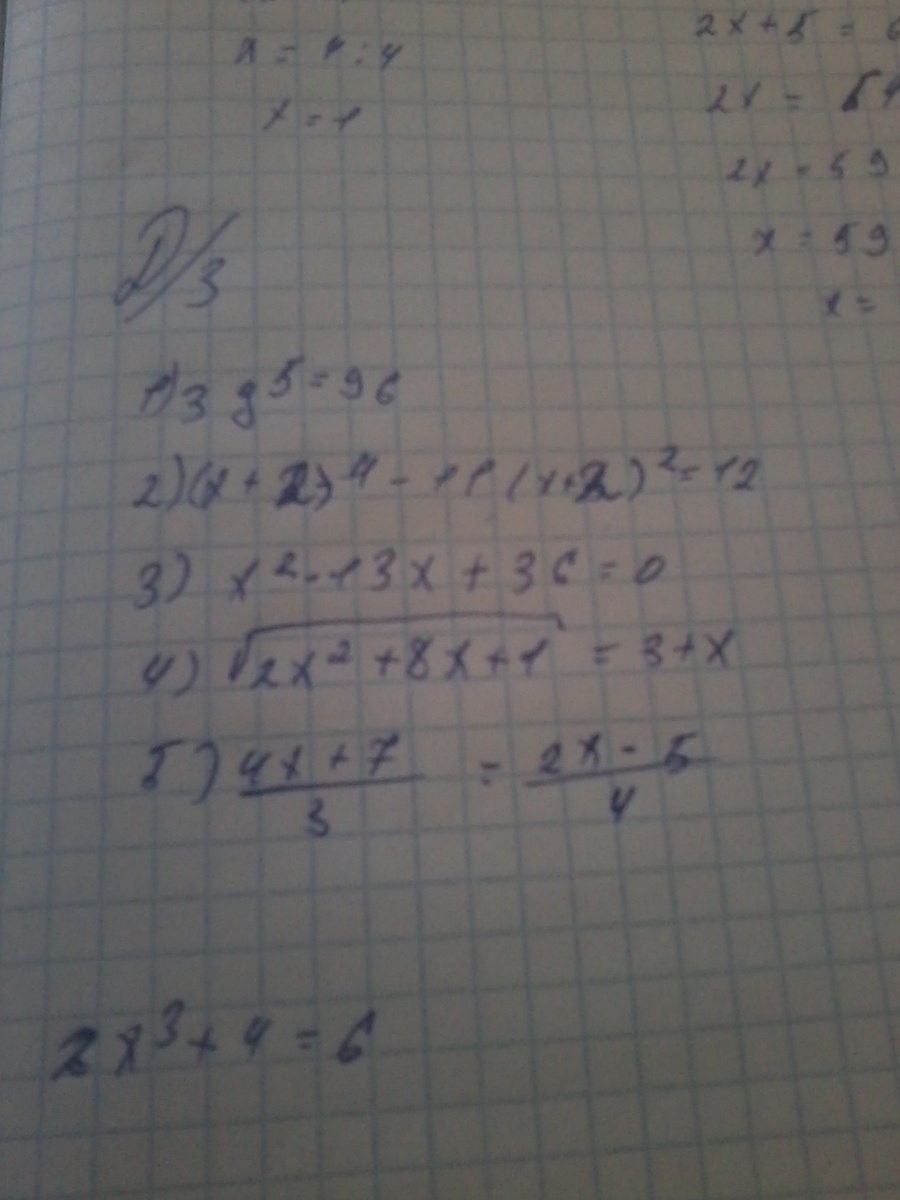 x = 4 : 4
x = 1
2x + 5 = 6
2x =
2x = 59
x = 59
x =
Д/З
1) 3 y^5 = 96
2) (x + 2)^4 - 11 (x + 2)^2 = 12
3) x^2 - 13x + 36 = 0
4) √(2x^2 + 8x + 1) = 3 + x
5) (4x + 7)/3 = (2x - 5)/4
2x^3 + 4 = 6